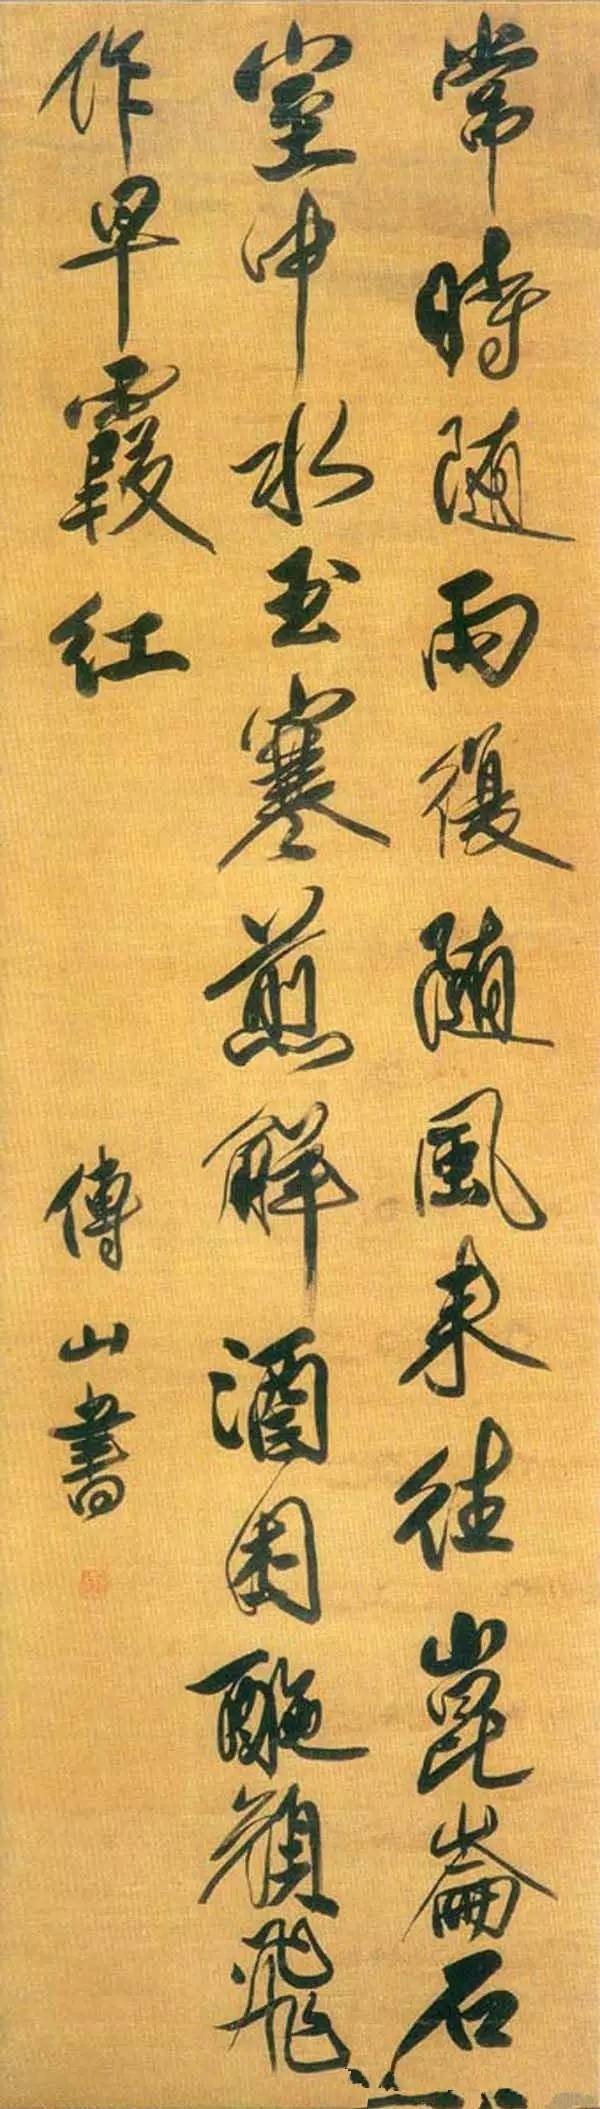 常時随雨復随風来往崑崙石
室中水玉寒煎解酒困酡顔飛
作早霞紅
傅山書